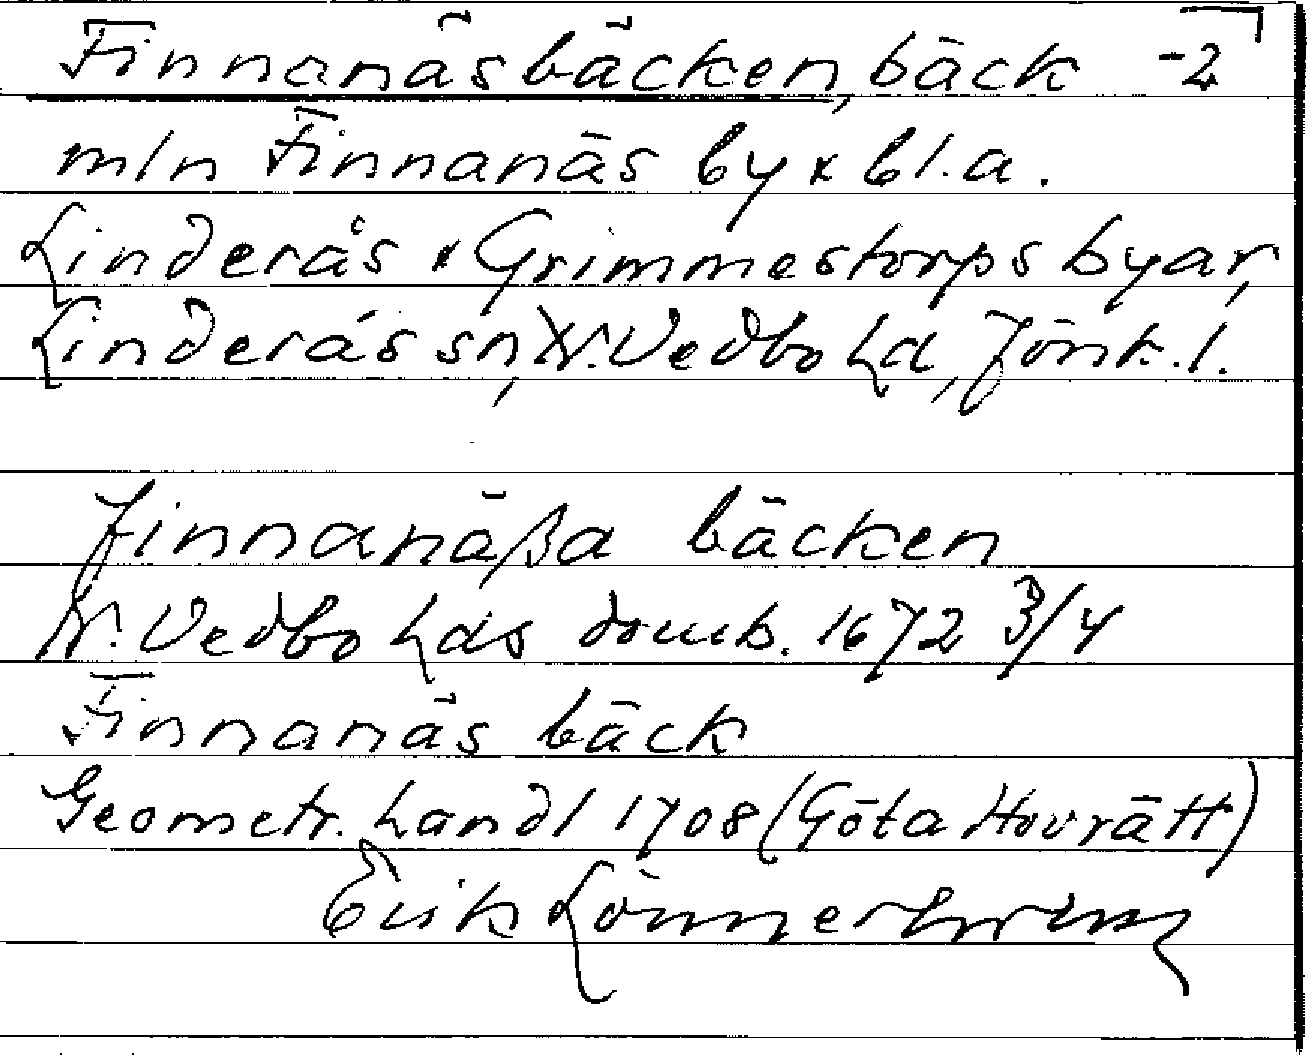 Finnanäsbäcken, bäck -2
mln Finnanäs by x bl.a.
Linderås x Grimmestorps byar,
Linderås sn, N. Vedbo hd, Jönk. l.
finnanäßa bäcken
N. Vedbo hds domb. 1672 3/4
Finnanäs bäck
Geometr. handl 1708 (Göta Hovrätt)
Erik Lönnerholm